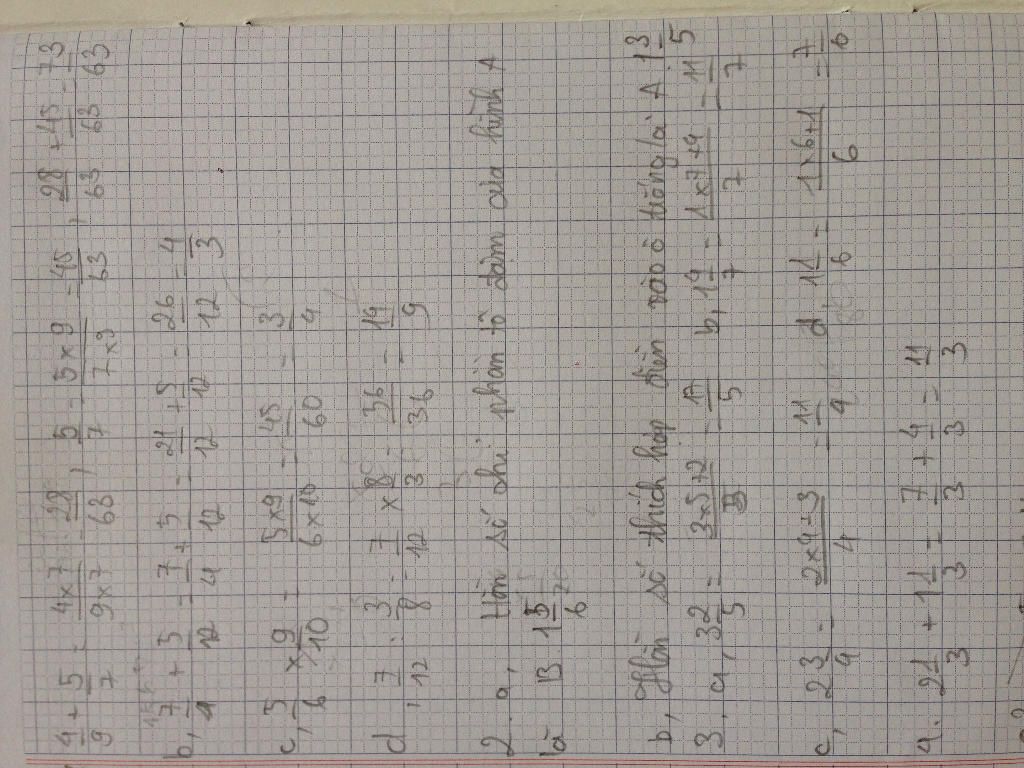 4/9 + 5/7 = 4x7/9x7 = 28/63 , 5/7 = 5x9/7x9 = 45/63 , 28/63 + 45/63 = 73/63
b, 7/4 + 5/12 = 7/4 + 5/12 = 21/12 + 5/12 = 26/12 = 4/3
c, 5/6 x 9/10 = 5x9/6x10 = 45/60 = 3/4
d, 7/12 : 3/8 = 7/12 x 8/3 = 56/36 = 14/9
2. a, Hỗn số chỉ phần tô đậm của hình A
là B. 1 5/6
b, Hỗn số thích hợp điền vào ô trống là A 1 3/5
3. a, 3 2/5 = 3x5+2/5 = 17/5 b, 1 4/7 = 1x7+4/7 = 11/7
c, 2 3/4 = 2x4+3/4 = 11/4 d 1 1/6 = 1x6+1/6 = 7/6
a. 2 1/3 + 1 1/3 = 7/3 + 4/3 = 11/3